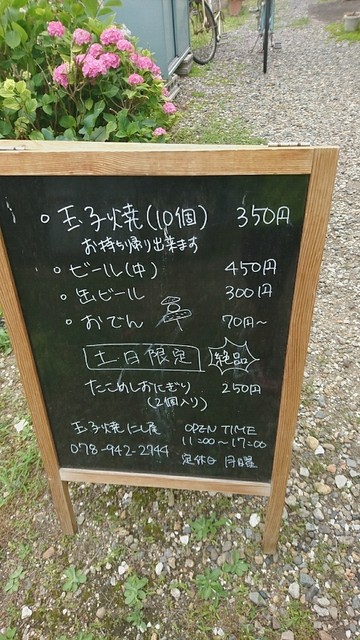 ○ 玉子焼(10個) 350円
お持ち帰り出来ます
○ ビール(中) 450円
○ 缶ビール 300円
○ おでん 70円~
土日限定 絶品
たこめしおにぎり 250円
(2個入り)
玉子焼にし屋 OPEN TIME
078-942-2744 11:00~17:00
定休日 月曜